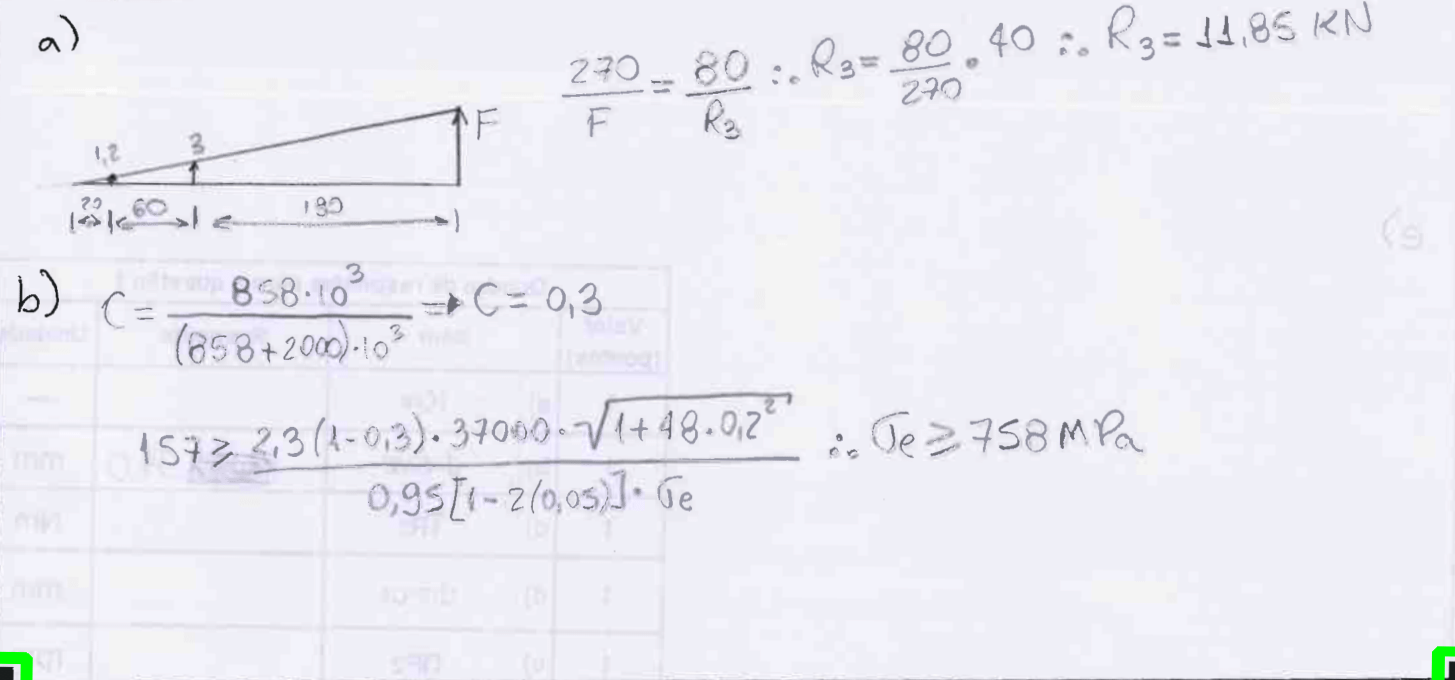 a)
270/F = 80/R₃ ∴ R₃ = 80/270 · 40 ∴ R₃ = 11,85 KN
1,2 3 F
20 60 190
b) C = 858·10³/(858+2000)·10³ → C = 0,3
157 ≥ 2,3(1-0,3)·37000·√(1+48·0,2²)/0,95[1-2(0,05)]·σe ∴ σe ≥ 758 MPa